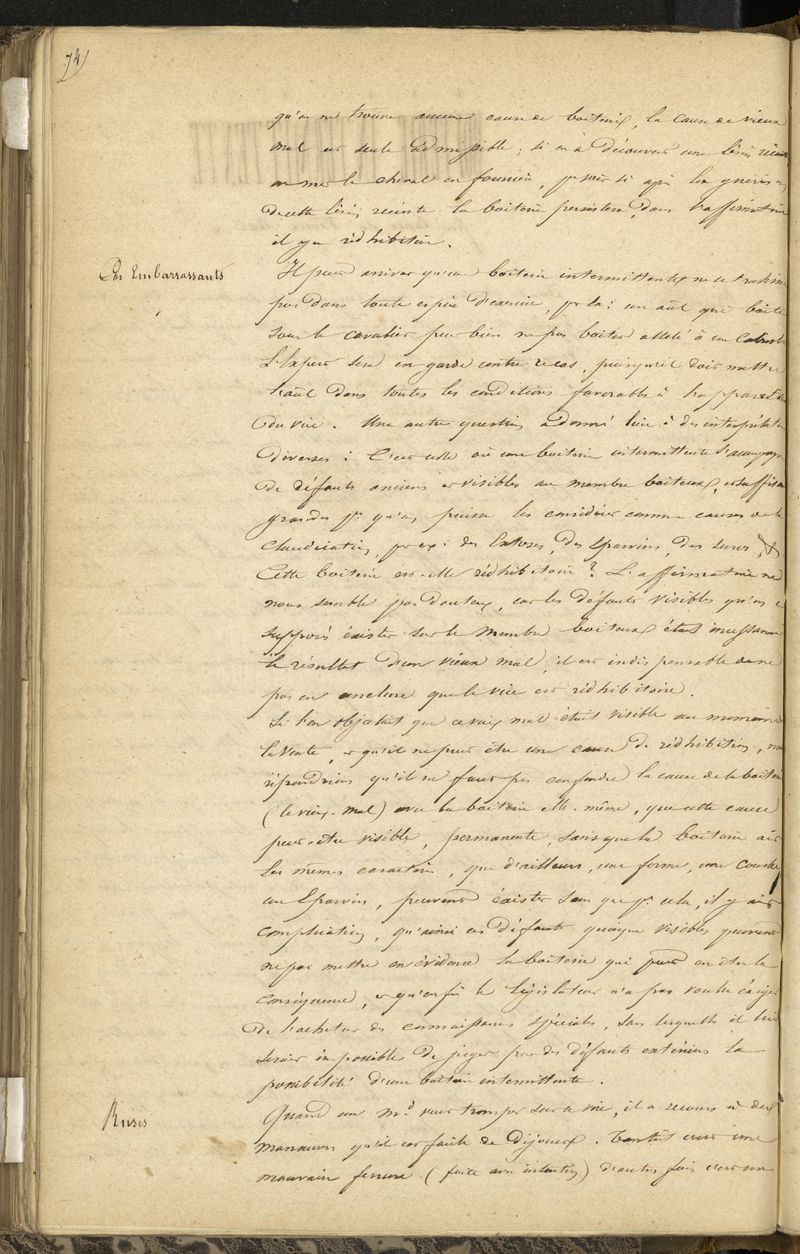 74)
qu'on ne trouve aucune cause de boiterie, la cause de vieux
mal est seule admissible ; si on a découvert une lésion récente
on met le cheval en fourrière, pr voir si après la guérison
de cette lésion récente la boiterie persistera, dans l'affirmative
il y a rédhibition.
Cas Embarrassants
Il peut arriver qu'une boiterie intermittente ne se trahisse
pas dans toute espèce d'exercice, pr ex : un aal qui boite
sous le cavalier peut bien ne pas boiter attelé à un cabriolet
L'Expert sera en garde contre ce cas, puisqu'il doit mettre
l'aal dans toutes les conditions favorables à l'apparition
du vice. Une autre question a donné lieu à des interprétations
diverses : C'est celle où une boiterie intermittente s'accompagne
de défauts anciens et visibles au membre boiteux, et suffisamment
grandes pr qu'on puisse les considérer comme causes de la
claudication, par ex : des Exostoses, des Eparvins, des suros, &
Cette boiterie est-elle rédhibitoire ? L'affirmative ne
nous semble pas douteuse, car les défauts visibles qu'on a
supposé éxister sur le membre boiteux étant nécessairement
le résultat d'un vieux mal, il est indispensable de ne
pas en conclure que le vice est rédhibitoire.
Si l'on objectait que ce vieux mal était visible au moment de
la vente, et qu'il ne peut être une cause de rédhibition, nous
répondrions qu'il ne faut pas confondre la cause de la boiterie
(le vieux-mal) avec la boiterie elle-même, que cette cause
peut être visible, permanente, sans que la boiterie ait
les mêmes caractères, que d'ailleurs, une forme, une courbe
un Eparvin, peuvent éxister sans que pr cela, il y ait
complication, qu'ainsi ces défauts quoique visibles peuvent
ne pas mettre en évidence la boiterie qui peut en être la
conséquence, et qu'enfin le législateur n'a pas voulu éxiger
de l'acheteur des connaissances spéciales, sans lesquelles il lui
serait impossible de juger par des défauts extérieurs la
possibilité d'une boiterie intermittente.
Ruses
Quand un md veut tromper sur ce vice, il a recours à des
manœuvres qu'il est facile de déjouer. Tantôt c'est une
mauvaise ferrure (faite avec intention) d'autres fois c'est un